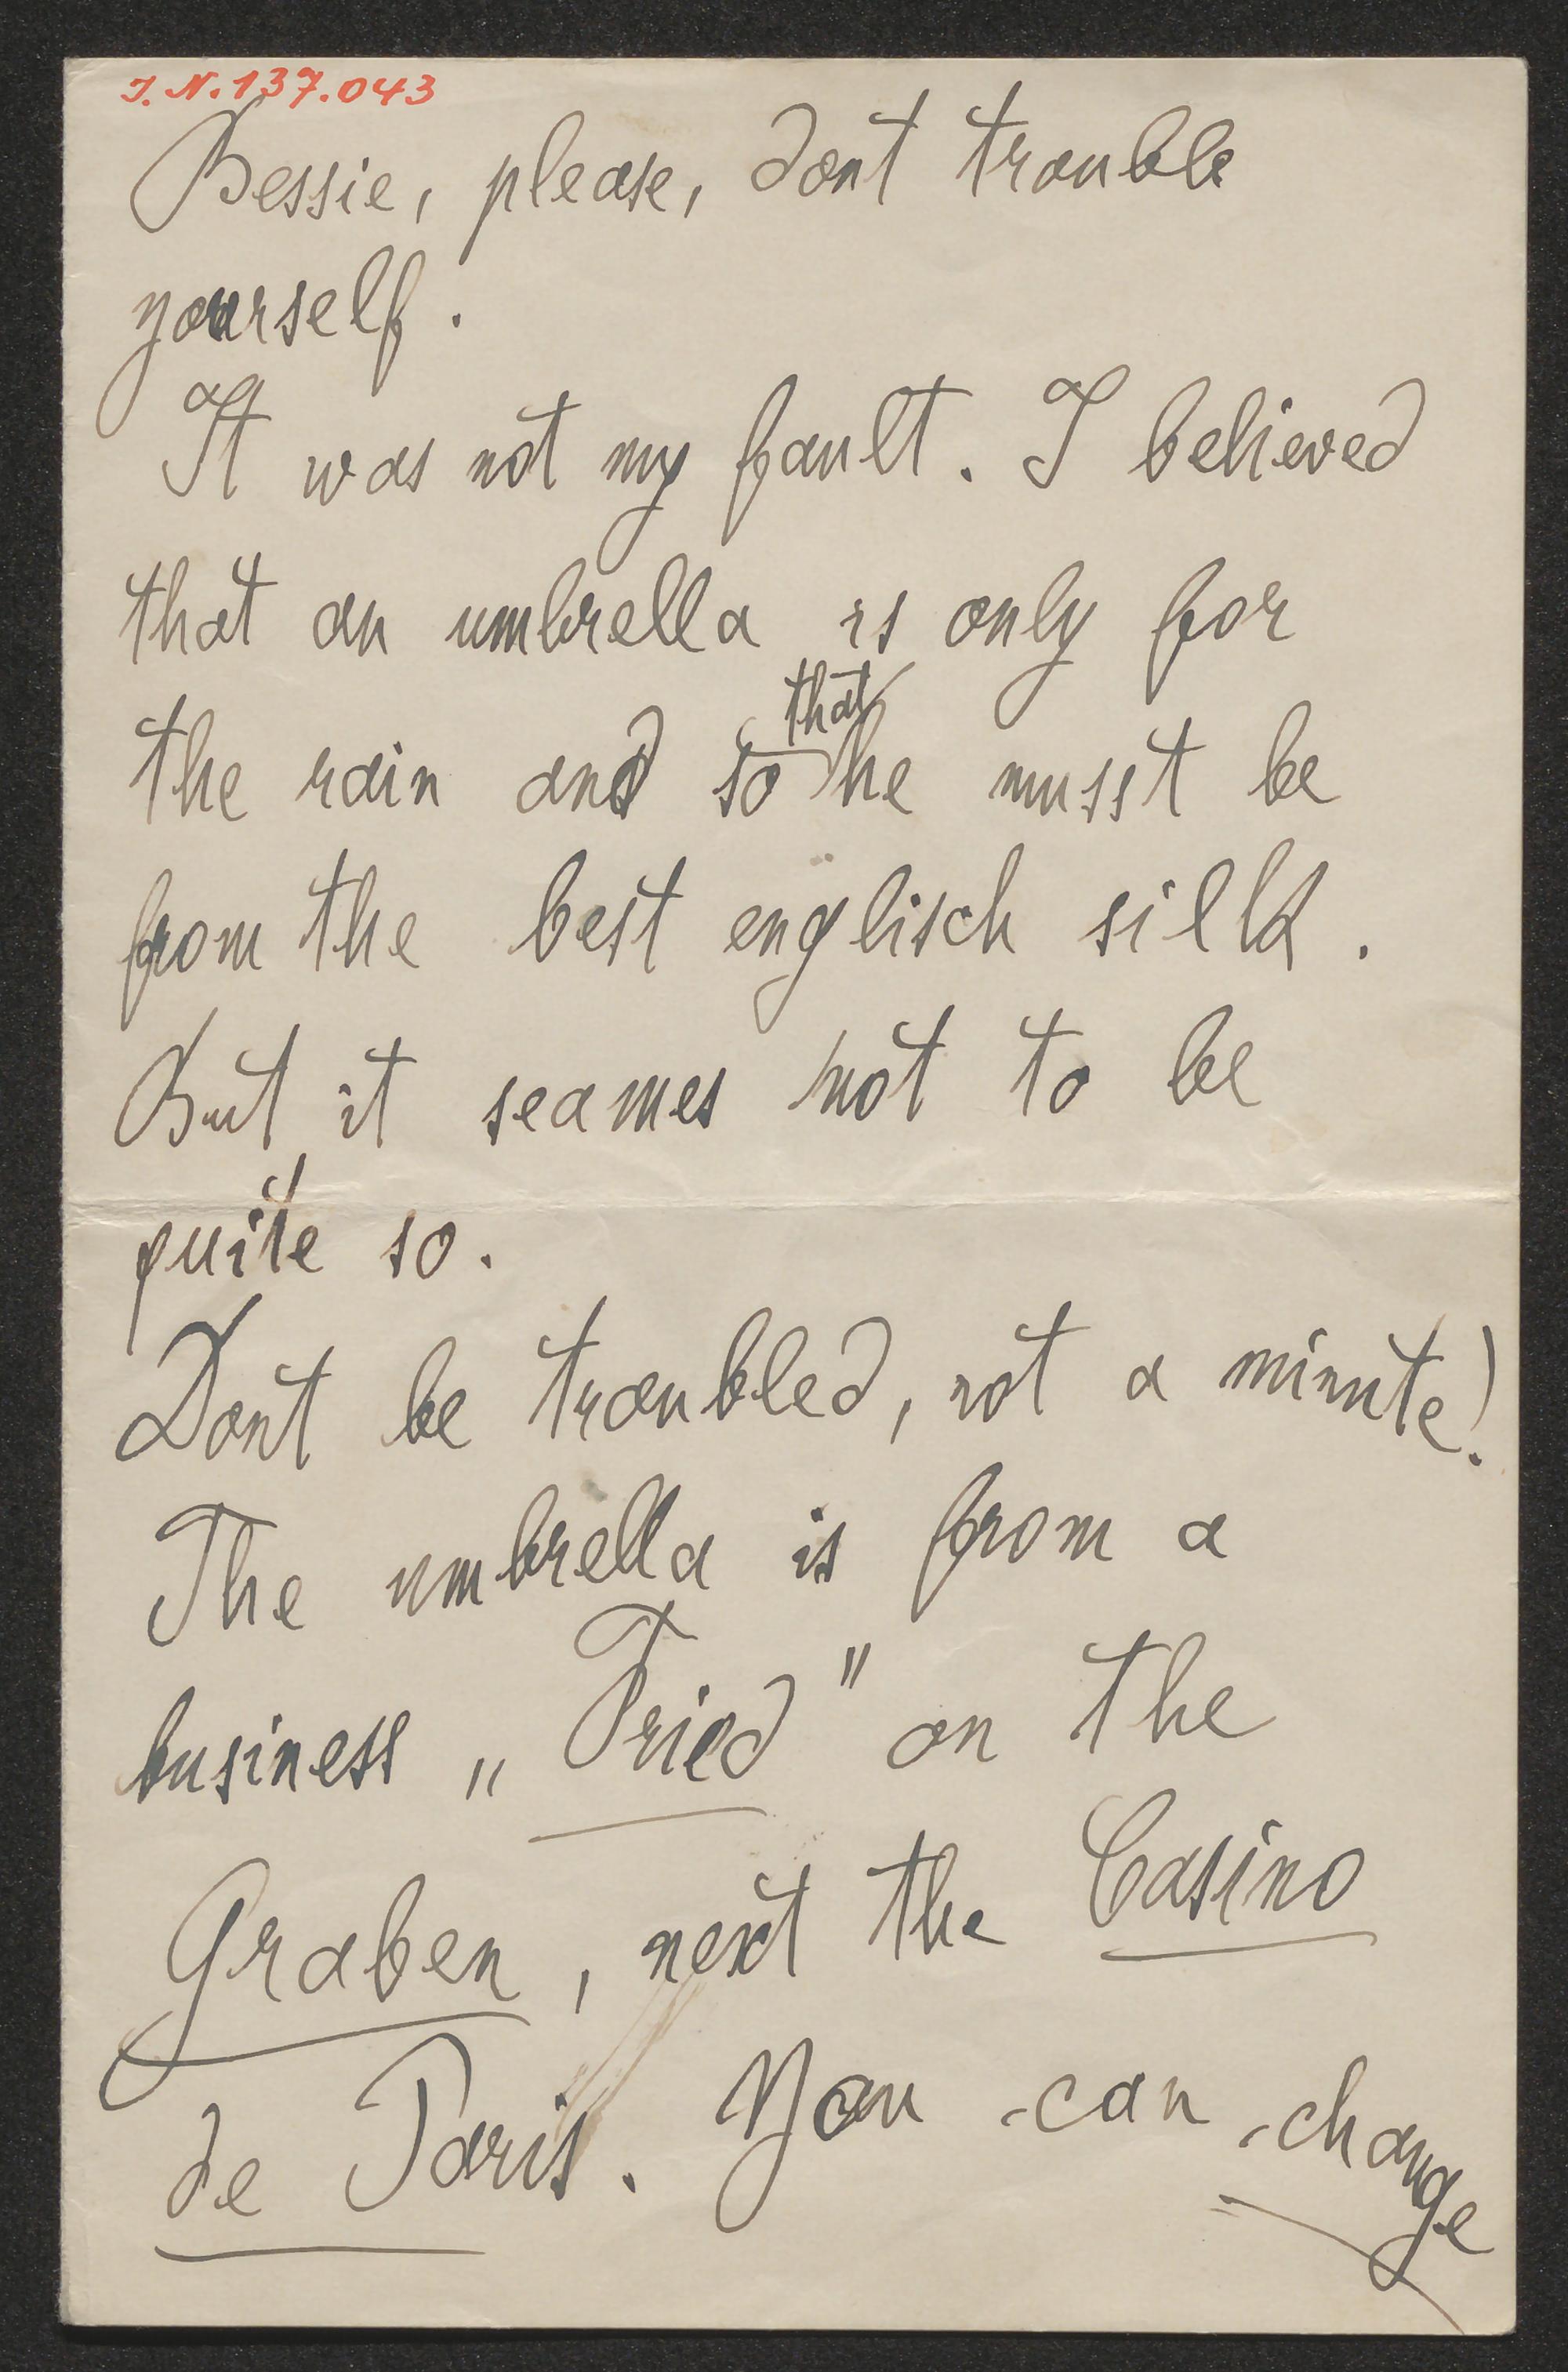 I.N.137.043
Bessie, please, dont trouble
yourself.
It was not my fault. I believed
that an umbrella is only for
that
the rain and so he musst be
from the best englisch silk.
But it seames not to be
quite so.
Dont be troubled, not a minute!
The umbrella is from a
business „Fried" on the
Graben, next the Casino
de Paris. You can change